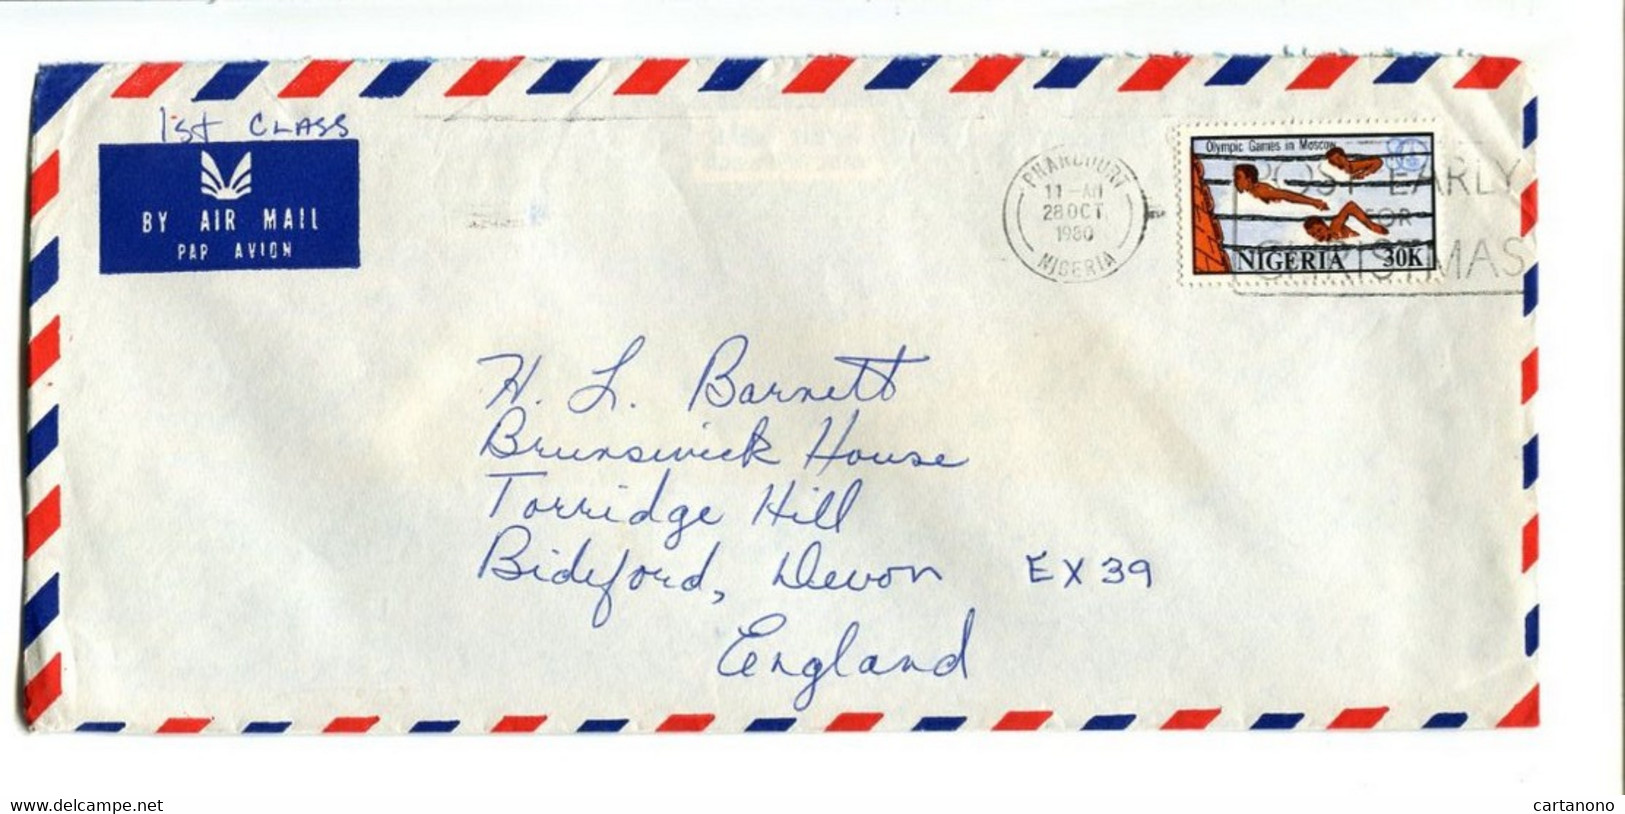 1st CLASS
BY AIR MAIL
PAR AVION
PHARCOURT
11-AM
28 OCT
1980
NIGERIA
Olympic Games in Moscow
NIGERIA 30K
POST EARLY
FOR
CHRISTMAS
H. L. Barnett
Brunswick House
Torridge Hill
Bideford, Devon EX39
England
www.delcampe.net
cartanono